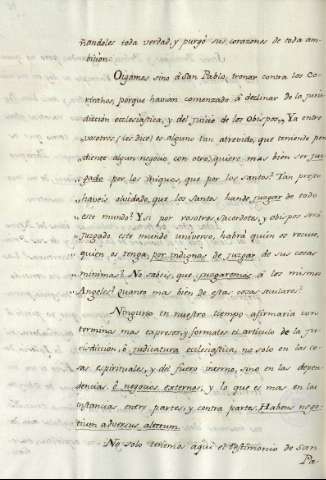 ñandoles toda verdad, y purgó sus corazones de toda am
bicion.
Oigamos sino á San Pablo, tronar contra los Co
rintios, porque havian comenzado á declinar de la juris
diccion eclesiastica, y del juicio de los Obispos. Ya entre
vosotros (les dice) es alguno tan atrevido, que teniendo pen
diente algun negocio con otro, quiere mas bien ser juz
gado por los iniquos, que por los Santos? Tan presto
haveis olvidado, que los Santos hande juzgar de todo
este mundo? Y si por vosotros Sacerdotes, y obispos será
juzgado este mundo universo, habrá quien os recuse,
quien os tenga por indignos de juzgar de sus cosas
minimas? No sabeis, que juzgaremos á los mismos
Angeles? Quanto mas bien de estas cosas seculares?
Ninguno en nuestro tiempo afirmaria con
terminos mas expresos, y formales el articulo de la ju
risdiccion, ó judicatura eclesiastica, no solo en las co
sas espirituales, y del fuero interno, sino en las depen
dencias ó negocios externos, y lo que es mas en las
instancias entre partes, y contra partes. Habens nego
tium adversus alterum.
No solo tenemos aqui el testimonio de San
Pa-